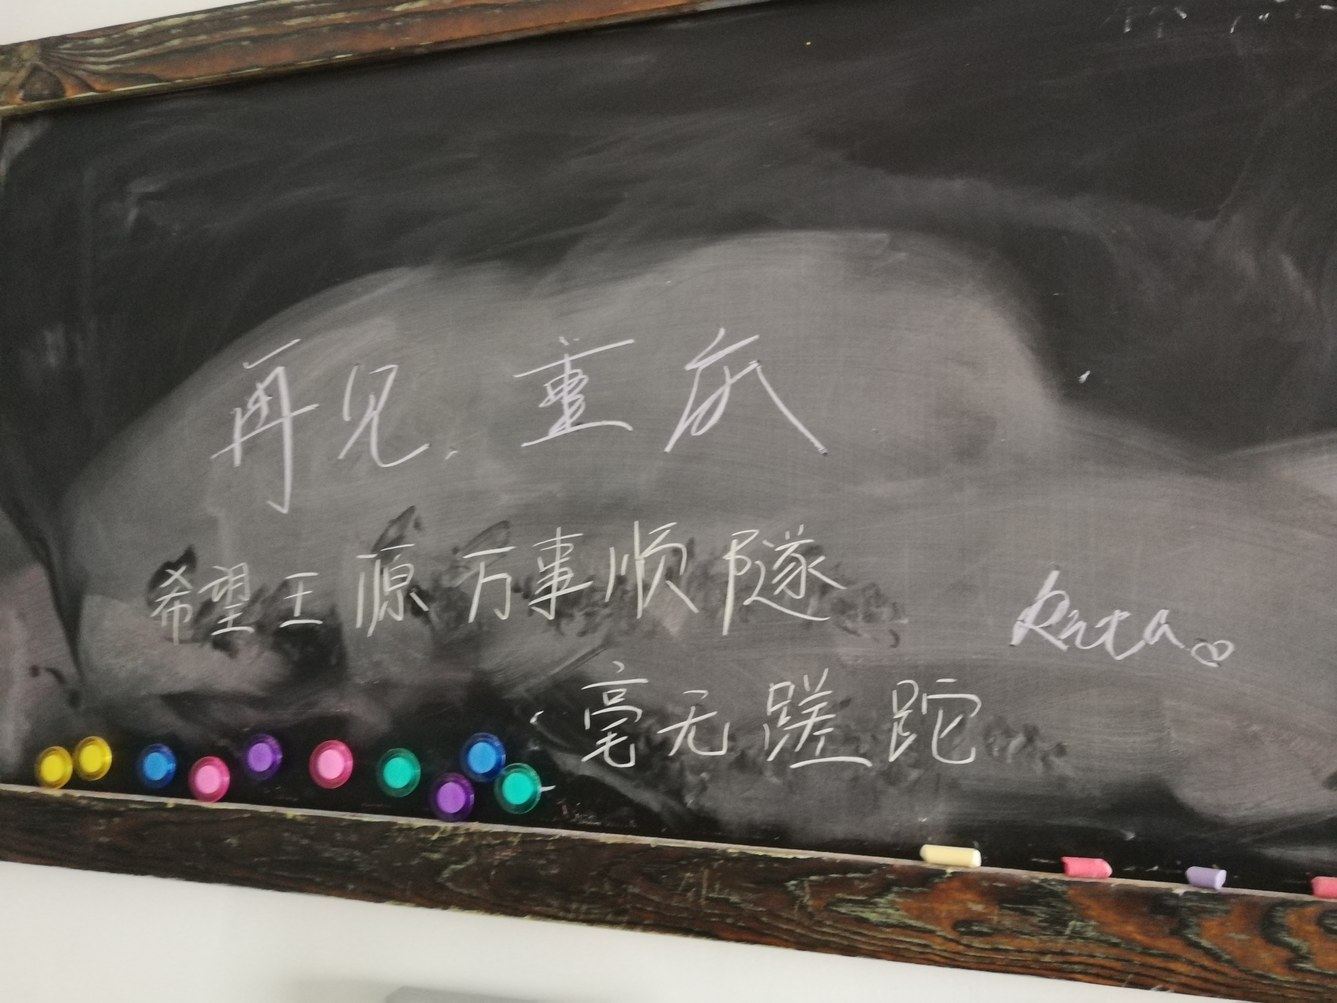 再见，重庆
希望王源万事顺隧
毫无蹉跎
Rita。